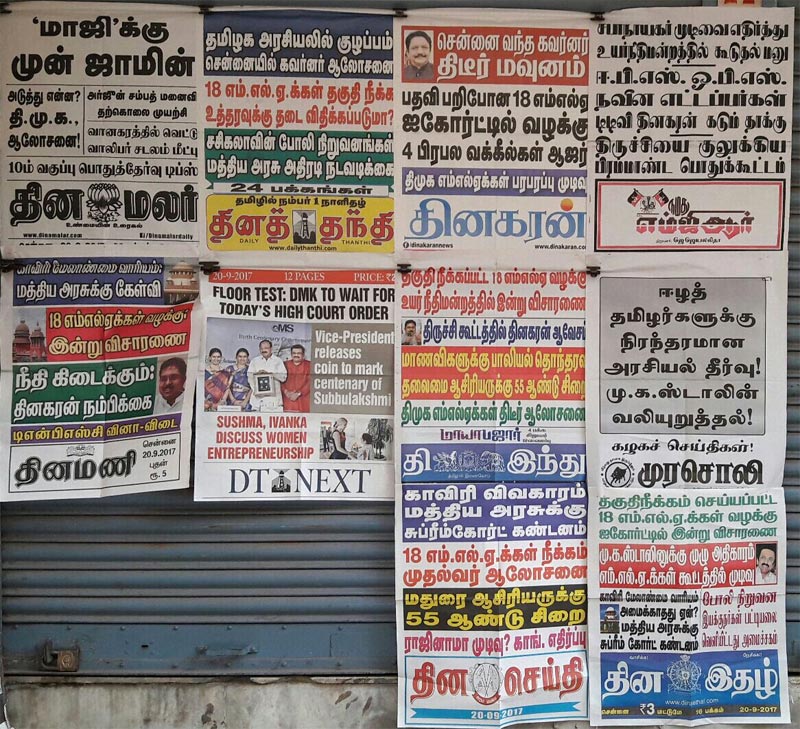 'மாஜி'க்கு
முன் ஜாமின்
அடுத்து என்ன?
தி.மு.க.,
ஆலோசனை!
அர்ஜுன் சம்பத் மனைவி
தற்கொலை முயற்சி
வானகரத்தில் வெட்டு
வாலிபர் சடலம் மீட்பு
10ம் வகுப்பு பொதுத்தேர்வு டிப்ஸ்
தின மலர்
உண்மையின் உரைகல்
www.dinamalar.com
/Dinamalardaily
தமிழக அரசியலில் குழப்பம்
சென்னையில் கவர்னர் ஆலோசனை
18 எம்.எல்.ஏ.க்கள் தகுதி நீக்க
உத்தரவுக்கு தடை விதிக்கப்படுமா?
சசிகலாவின் போலி நிறுவனங்கள்
மத்திய அரசு அதிரடி நடவடிக்கை
24 பக்கங்கள்
தமிழில் நம்பர் 1 நாளிதழ்
தினத் தந்தி
DAILY THANTHI
www.dailythanthi.com
சென்னை வந்த கவர்னர்
திடீர் மவுனம்
பதவி பறிபோன 18 எம்எல்ஏ
ஐகோர்ட்டில் வழக்கு
4 பிரபல வக்கீல்கள் ஆஜர்
திமுக எம்எல்ஏக்கள் பரபரப்பு முடிவு
தினகரன்
/dinakarannews
www.dinakaran.com
சபாநாயகர் முடிவை எதிர்த்து
உயர்நீதிமன்றத்தில் கூடுதல் மனு
ஈ.பி.எஸ். ஓ.பி.எஸ்.
நவீன எட்டப்பர்கள்
டிடிவி தினகரன் கடும் தாக்கு
திருச்சியை குலுக்கிய
பிரமாண்ட பொதுக்கூட்டம்
நமது
எம்ஜிஆர்
காவிரி மேலாண்மை வாரியம்:
மத்திய அரசுக்கு கேள்வி
18 எம்எல்ஏக்கள் வழக்கு:
இன்று விசாரணை
நீதி கிடைக்கும்:
தினகரன் நம்பிக்கை
டிஎன்பிஎஸ்சி வினா-விடை
தினமணி
சென்னை
20.9.2017
புதன்
ரூ. 5
20-9-2017 12 PAGES PRICE: ₹2
FLOOR TEST: DMK TO WAIT FOR
TODAY'S HIGH COURT ORDER
MS
Birth Centenary
Vice-President
releases
coin to mark
centenary of
Subbulakshmi
SUSHMA, IVANKA
DISCUSS WOMEN
ENTREPRENEURSHIP
DT NEXT
தகுதி நீக்கப்பட்ட 18 எம்எல்ஏ வழக்கு
உயர் நீதிமன்றத்தில் இன்று விசாரணை
திருச்சி கூட்டத்தில் தினகரன் ஆவேசம்
மாணவிகளுக்கு பாலியல் தொந்தரவு
தலைமை ஆசிரியருக்கு 55 ஆண்டு சிறை
திமுக எம்எல்ஏக்கள் திடீர் ஆலோசனை
மாயாபஜார்
தி இந்து
காவிரி விவகாரம்
மத்திய அரசுக்கு
சுப்ரீம்கோர்ட் கண்டனம்
18 எம்.எல்.ஏ.க்கள் நீக்கம்
முதல்வர் ஆலோசனை
மதுரை ஆசிரியருக்கு
55 ஆண்டு சிறை
ராஜினாமா முடிவு? காங். எதிர்ப்பு
தின செய்தி
20-09-2017
ஈழத்
தமிழர்களுக்கு
நிரந்தரமான
அரசியல் தீர்வு!
மு.க.ஸ்டாலின்
வலியுறுத்தல்!
கழகச் செய்திகள்!
முரசொலி
தகுதிநீக்கம் செய்யப்பட்ட
18 எம்.எல்.ஏ.க்கள் வழக்கு
ஐகோர்ட்டில் இன்று விசாரணை
மு.க.ஸ்டாலினுக்கு முழு அதிகாரம்
எம்.எல்.ஏ.க்கள் கூட்டத்தில் முடிவு
காவிரி மேலாண்மை வாரியம்
அமைக்காதது ஏன்?
மத்திய அரசுக்கு
சுப்ரீம் கோர்ட் கண்டனம்
போலி நிறுவன
இயக்குநர்கள் பட்டியலை
வெளியிட்டது அமைச்சகம்
தின இதழ்
www.dinaithal.com
சென்னை ₹3 மட்டுமே 16 பக்கம் 20-9-2017